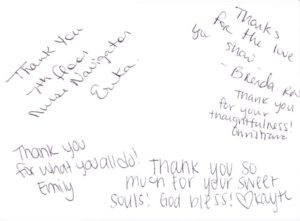 Thank You
7th floor
Nurse Navigator
Erika
Thanks
for the love
you
show.
- Brenda RN
Thank you
for your
thoughtfulness!
Christiana
Thank you
for what you all do!
Emily
Thank you so
much for your sweet
souls! God bless! ♡Kayte